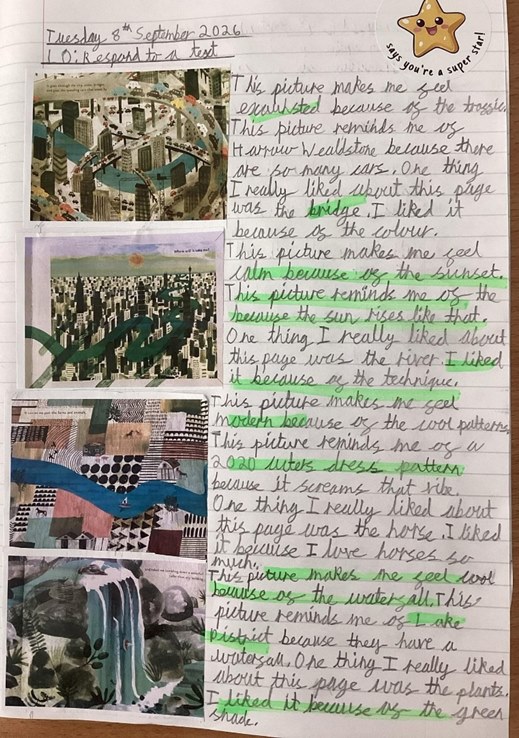 Tuesday 8th September 2026
LO: Respond to a text
says you're a super star!
This picture makes me feel
exausted because of the traffic.
This picture reminds me of
Harrow Wealdstone because there
are so many cars. One thing
I really liked about this page
was the bridge. I liked it
because of the colour.
This picture makes me feel
calm because of the sunset.
This picture reminds me of the
because the sun rises like that.
One thing I really liked about
this page was the river. I liked
it because of the technique.
This picture makes me feel
modern because of the cool patterns.
This picture reminds me of a
2020 dress pattern
because it screams that vibe.
One thing I really liked about
this page was the horse. I liked
it because I love horses so
much.
This picture makes me feel cool
because of the waterfall. This
picture reminds me of Lake
District because they have a
waterfall. One thing I really liked
about this page was the plants.
I liked it because of the green
shade.